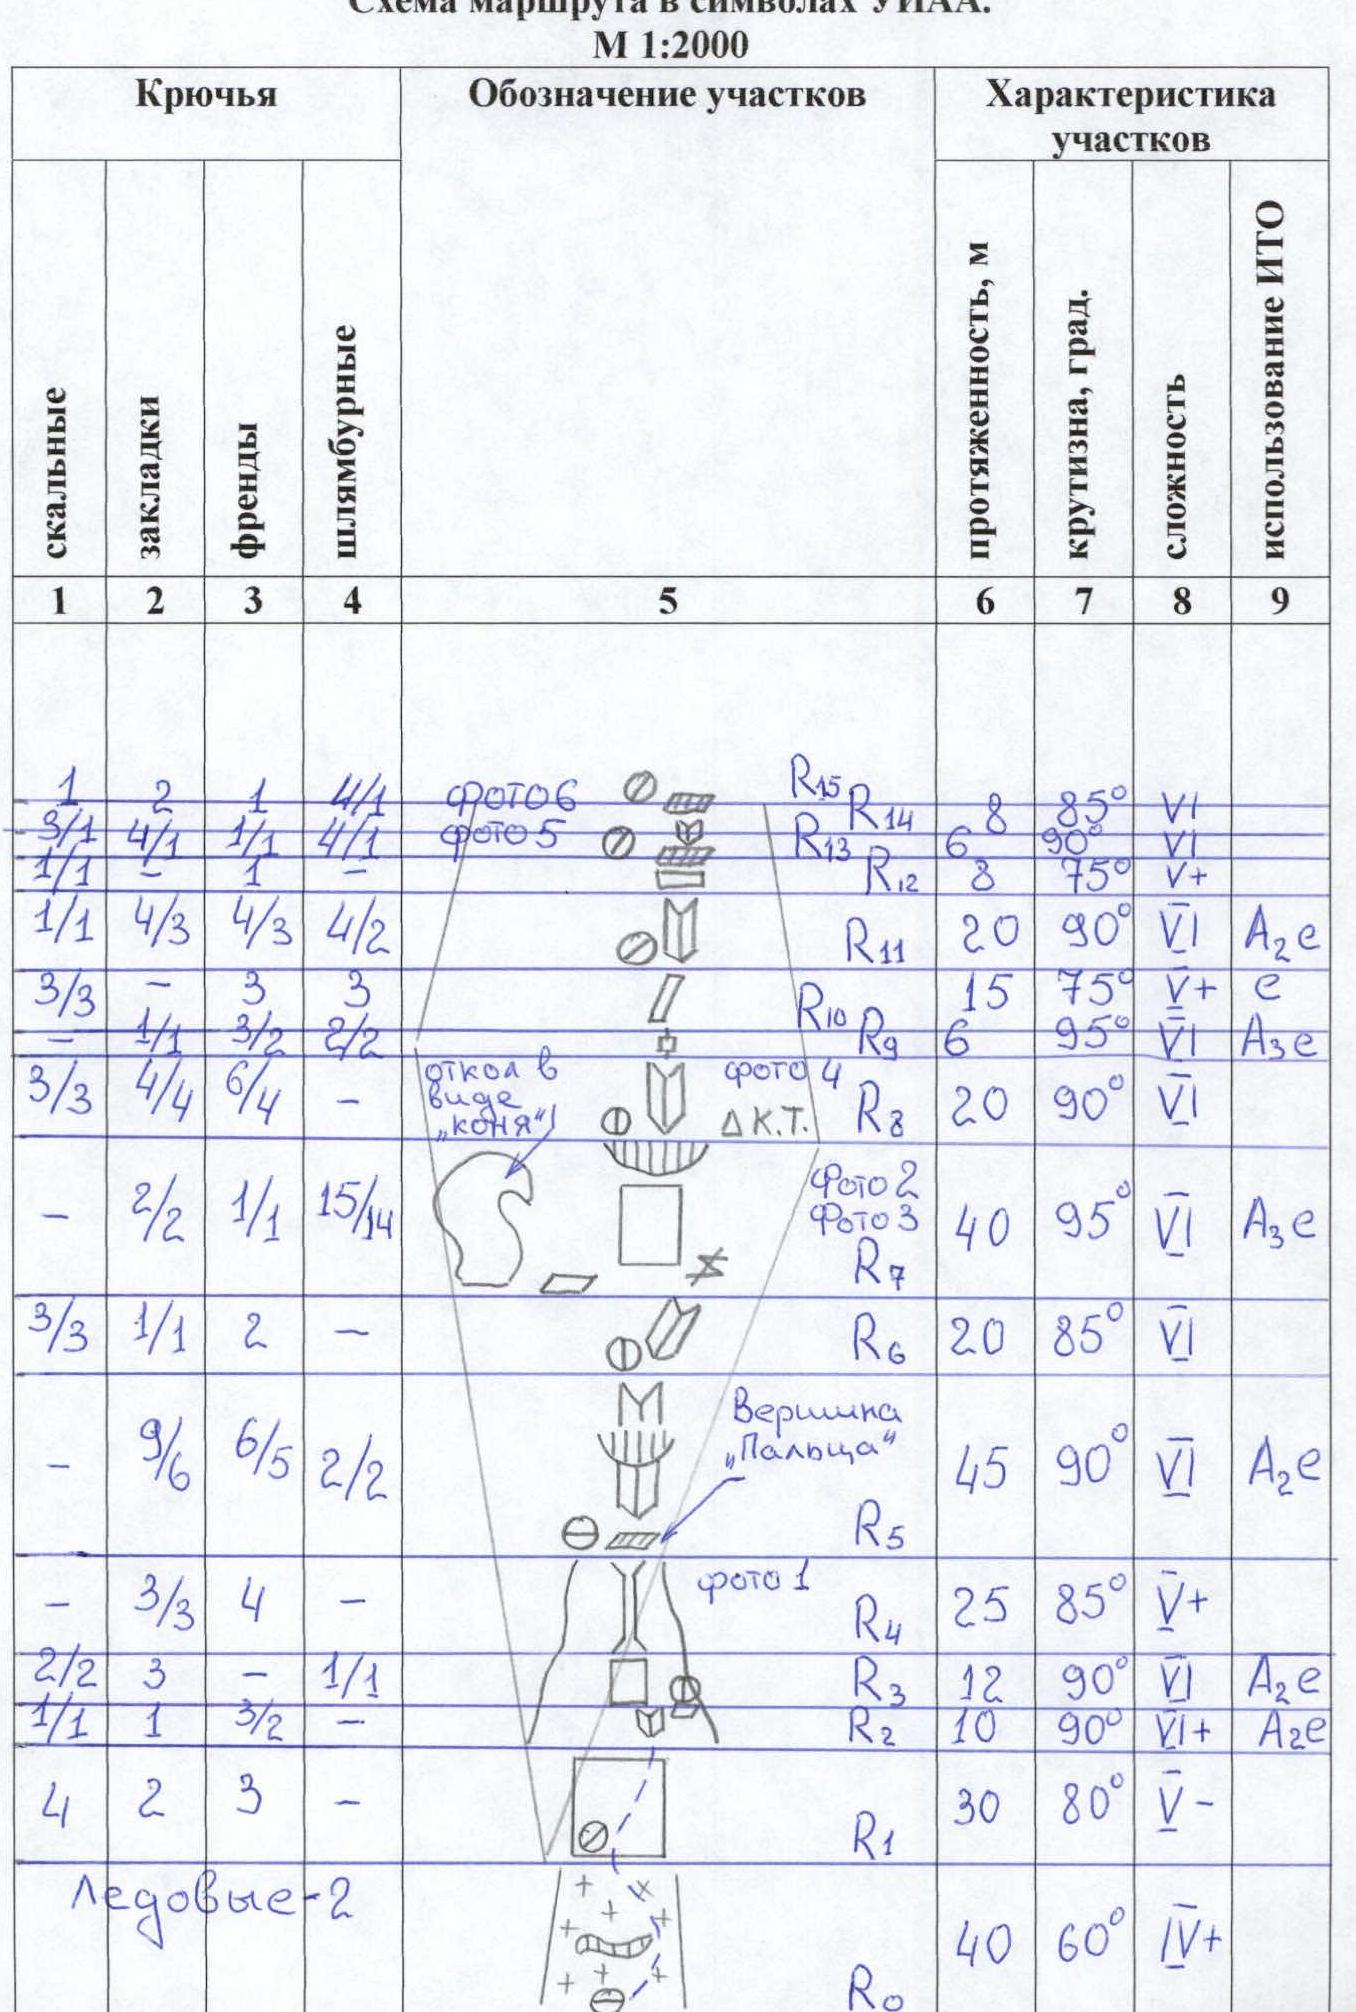 Схема маршрута в символах УИАА.
М 1:2000
Крючья Обозначение участков Характеристика участков
скальные закладки френды шлямбурные протяженность, м крутизна, град. сложность использование ИТО
1 2 3 4 5 6 7 8 9
R15
1 2 1 4/1 фото 6 R14 8 85° VI
3/1 4/1 1/1 4/1 фото 5 R13 6 90° VI
1/1 – 1 – R12 8 75° V+
1/1 4/3 4/3 4/2 R11 20 90° VI A2e
3/3 – 3 3 R10 15 75° V+ e
– 1/1 3/2 2/2 R9 6 95° VI A3e
откол в виде „коня" фото 4
3/3 4/4 6/4 – Δ К.Т. R8 20 90° VI
Фото 2
Фото 3
– 2/2 1/1 15/14 R7 40 95° VI A3e
3/3 1/1 2 – R6 20 85° VI
Вершина
„Пальца"
– 9/6 6/5 2/2 R5 45 90° VI A2e
фото 1
– 3/3 4 – R4 25 85° V+
2/2 3 – 1/1 R3 12 90° VI A2e
1/1 1 3/2 – R2 10 90° VI+ A2e
4 2 3 – R1 30 80° V-
Ледовые-2 40 60° IV+
R0